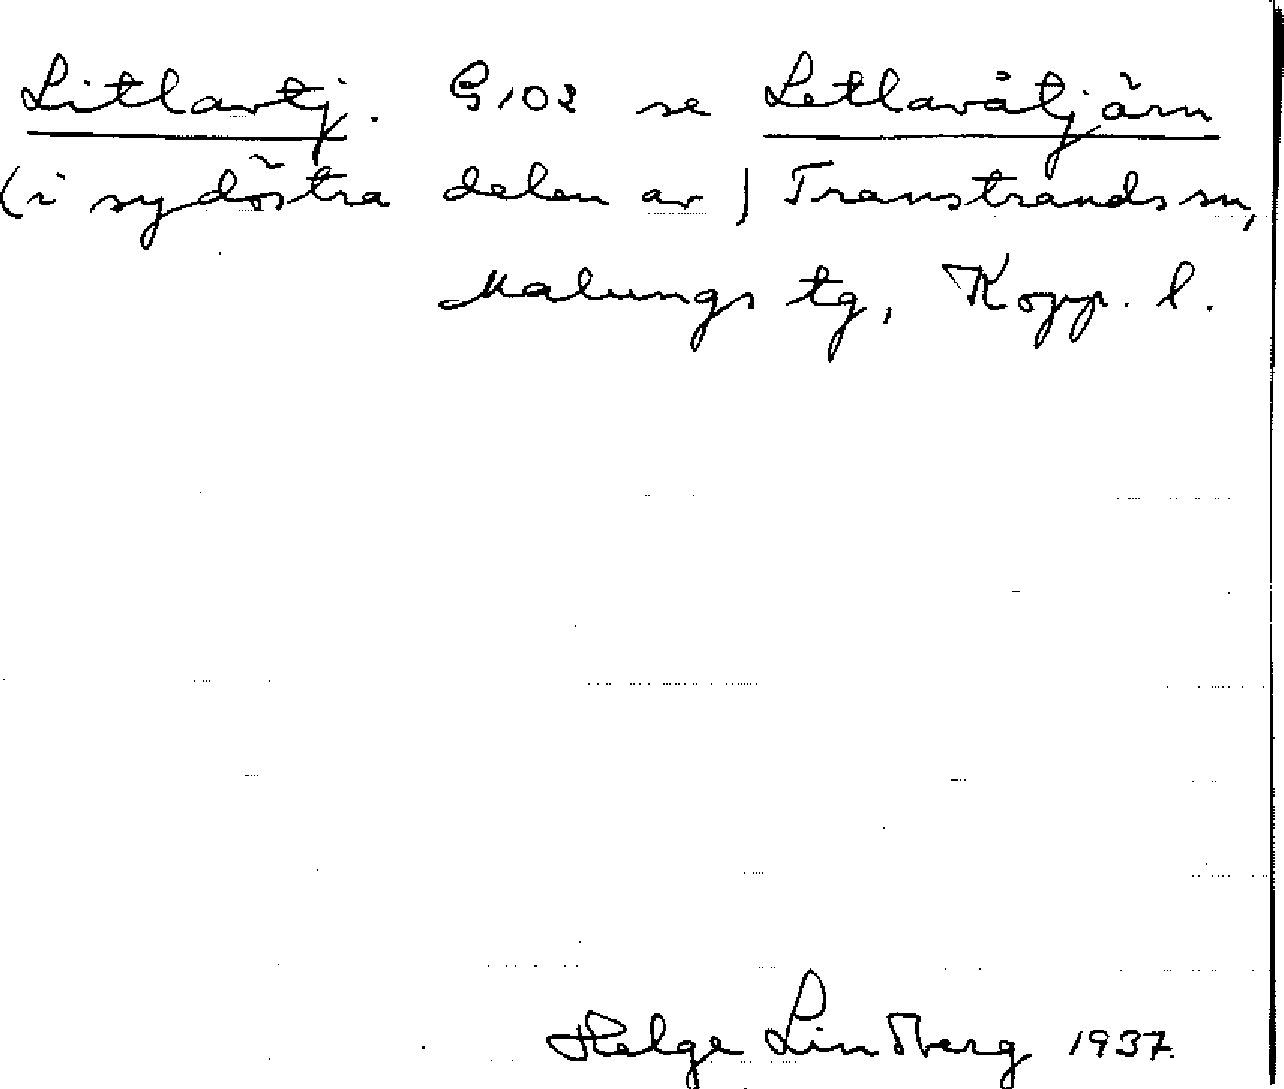 Litlavtj. G102 se Letlavåtjärn
(i sydöstra delen av) Transtrands sn,
Malungs tg, Kopp. l.
Helge Lindberg 1937.